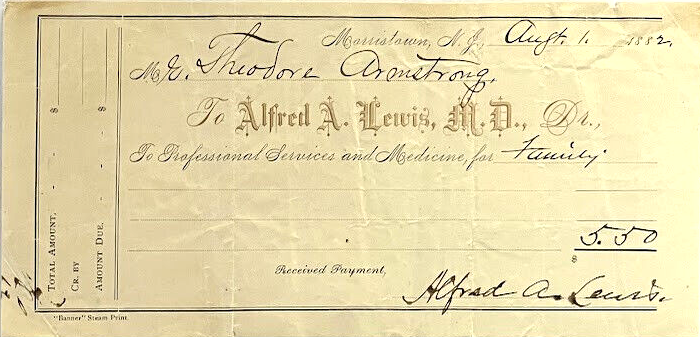 Morristown, N. J., Augt. 1. 1882.
Mr. Theodore Armstrong,
To Alfred A. Lewis, M.D., Dr.,
To Professional Services and Medicine, for Family
5.50
$
Received Payment,
Alfred A. Lewis.
Total Amount, - - $
Cr. by
Amount Due, - - $
"Banner" Steam Print.